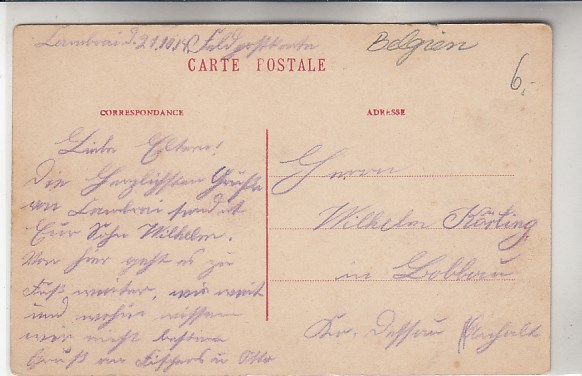 Cambrai d. 21.10.14. Feldpostkarte
Belgien
6,-
CARTE POSTALE
CORRESPONDANCE
ADRESSE
Liebe Eltern!
Die herzlichsten Grüße
von Cambrai sendet
Eur Sohn Wilhelm.
Von hier geht es zu
Fuß weiter, wie weit
und wohin wissen
wir nicht
Gruß an Fischers u. Otto
Herrn
Wilhelm Körting
in Bobbau
Kr. Dessau Anhalt